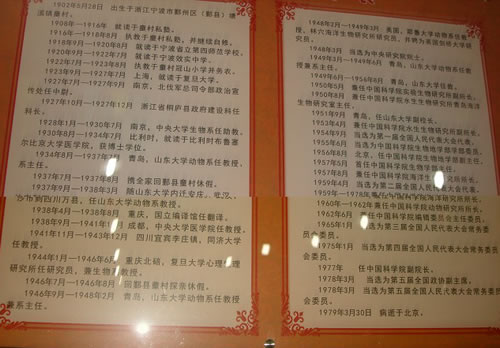 1902年8月28日 出生于浙江宁波市鄞州区（鄞县）塘
溪镇童村。
1908年—1916年 就读于童村私塾。
1916年—1918年8月 执教于童村私塾，并继续自修。
1918年9月—1920年8月 就读于宁波省立第四师范学校。
1920年9月—1922年7月 就读于宁波效实中学。
1922年8月—1923年7月 执教于童村冠山小学并务农。
1923年9月—1927年7月 上海，就读于复旦大学。
1927年7月—1927年9月 南京，北伐军总司令部政治宣
传处任中尉。
1927年10月—1927年12月 浙江省桐庐县政府建设科任
科长。
1928年1月—1930年7月 南京，中央大学生物系任助教。
1930年8月—1934年7月 比利时，就读于比利时布鲁塞
尔比京大学医学院，获博士学位。
1934年8月—1937年 青岛，山东大学动物系任教授，
系主任。
1937年7月—1937年8月 携全家回鄞县童村休假。
1937年9月—1938年3月 随山东大学内迁安庆、
的四川万县，任山东大学动物系教授。
1938年4月—1938年8月 重庆，国立编译馆任翻译。
1938年9月—1941年1月 成都，中央大学医学院任教授。
1941年1月—1943年12月 四川宜宾李庄镇，同济大学
任教授。
1944年1月—1946年6月 重庆北碚，复旦大学心理生理
研究所任研究员，兼生物系教授。
1946年7月—1946年8月 回鄞县童村探亲休假。
1946年9月—1948年2月 青岛，山东大学动物系任教授
兼系主任。
1948年2月—1949年3月 美国，耶鲁大学动物系任教
授，林穴海洋生物研究所研究员，并聘为英国剑桥大学研
究员。
1948年3月 当选为中央研究院院士。
1949年3月—1949年6月 青岛，山东大学动物系任教
授兼系主任。
1949年6月—1956年8月 青岛，山东大学任
1950年5月 兼任中国科学院实验生物研究所副所长。
1950年8月 兼任中国科学院水生生物研究所青岛海洋
生物研究室主任。
1951年9月 任山东大学副校长。
1953年4月 兼任中国科学院水生生物研究所副所长。
1954年9月 当选为第一届全国人民代表大会代表。
1955年6月 当选为中国科学院生物地学部学部委员。
1956年8月 北京，任中国科学院生物地学部副主任。
1957年5月 首任中国科学院生物学部主任。
1957年8月 兼任中国科学院海洋生物研究所所长。
1959年4月 当选为第二届全国人民代表大会代表。
1959年—1978年 兼任中国科学院海洋研究所所长。
1960年—1962年 兼任中国科学院动物研究所所长。
1962年6月 兼任中国科学院编辑委员会主任委员。
1965年1月 当选为第三届全国人民代表大会常务委
员会委员。
1975年1月 当选为第四届全国人民代表大会常务委
员会委员。
1977年 任中国科学院副院长。
1978年3月 当选为第五届全国政协副主席。
1978年3月 当选为第五届全国人民代表大会常务委员
会委员。
1979年3月30日 病逝于北京。